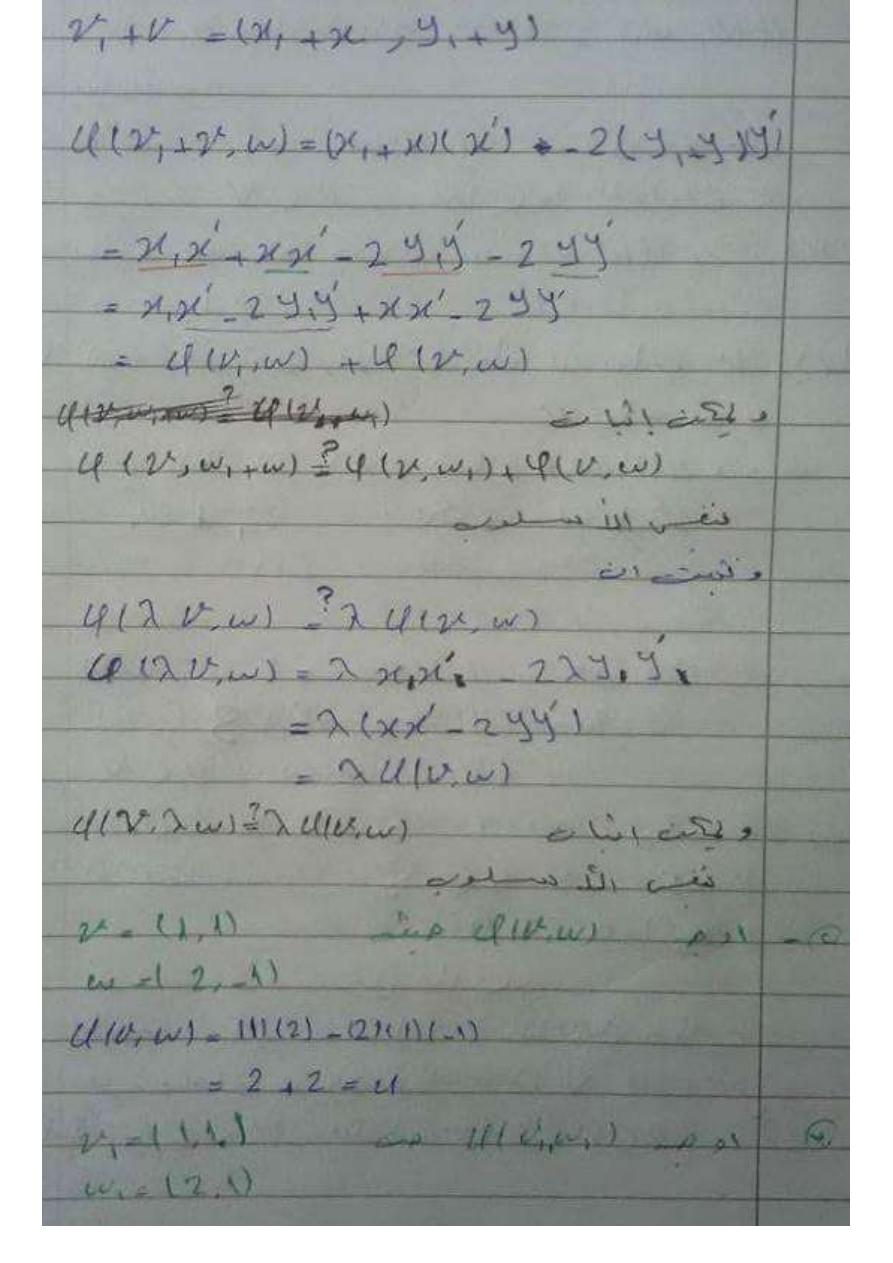 v₁ + v = (x₁ + x , y₁ + y)
φ(v₁+v, w) = (x₁+x)(x′) - 2(y₁+y)y′
= x₁x′ + xx′ - 2y₁y′ - 2yy′
= x₁x′ - 2y₁y′ + xx′ - 2yy′
= φ(v₁,w) + φ(v,w)
و يمكن إثبات
φ(v, w₁+w) ≟ φ(v,w₁) + φ(v,w)
نفس الأسلوب
و نثبت ان
φ(λv,w) ≟ λφ(v,w)
φ(λv,w) = λxx′ - 2λyy′
= λ(xx′ - 2yy′)
= λφ(v,w)
و يمكن اثبات φ(v,λw) ≟ λφ(v,w)
نفس الأسلوب
٢- اوجد φ(v,w) حيث v = (1,1)
w = (2,-1)
φ(v,w) = (1)(2) - (2)(1)(-1)
= 2 + 2 = 4
اوجد φ(v₁,w₁) حيث v₁ = (1,1)
w₁ = (2,1)